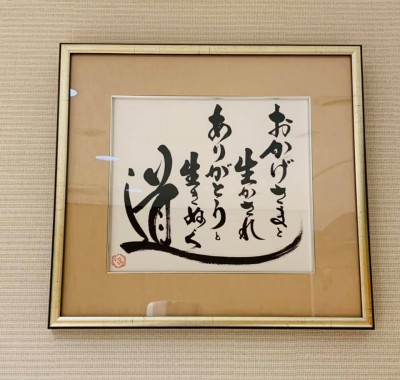 おかげさまと
生かされ
ありがとうと
生きぬく
道